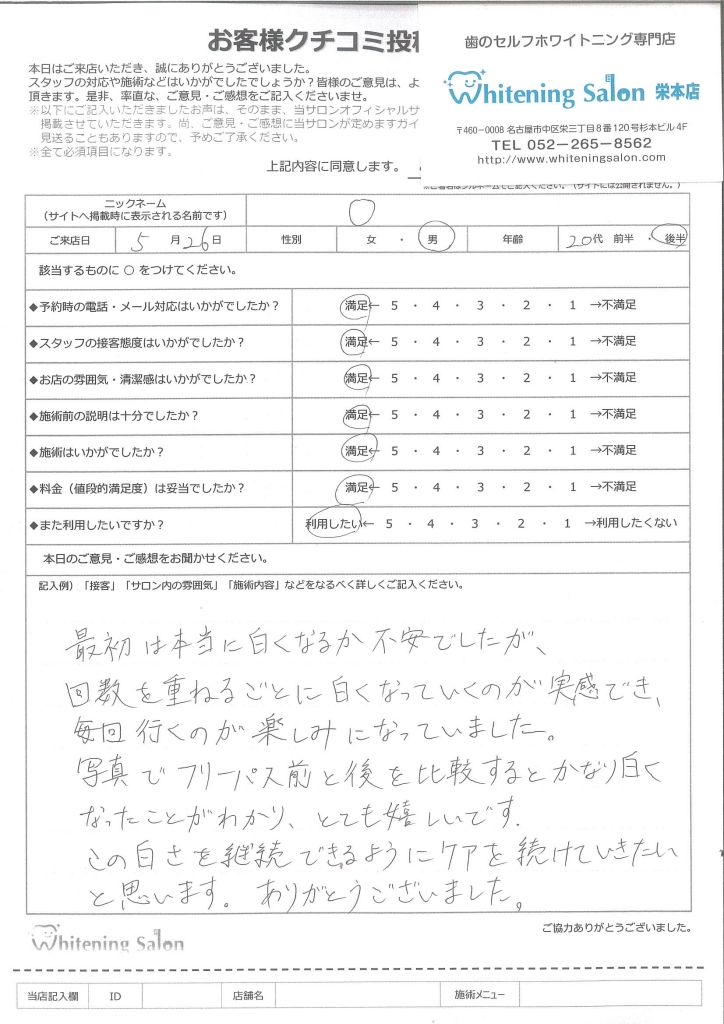 お客様クチコミ投稿
歯のセルフホワイトニング専門店
Whitening Salon 栄本店
〒460-0008 名古屋市中区栄三丁目8番120号杉本ビル4F
TEL 052-265-8562
http://www.whiteningsalon.com
本日はご来店いただき、誠にありがとうございました。
スタッフの対応や施術などはいかがでしたでしょうか?皆様のご意見は、よ
頂きます。是非、率直な、ご意見・ご感想をご記入くださいませ。
※以下にご記入いただきましたお声は、そのまま、当サロンオフィシャルサ
掲載させていただきます。尚、ご意見・ご感想に当サロンが定めますガイ
見送ることもありますので、予めご了承ください。
※全て必須項目になります。
上記内容に同意します。
※ご署名はフルネームでご記入ください。(サイトには公開されません。)
ニックネーム
(サイトへ掲載時に表示される名前です)
O
ご来店日 5 月 26 日 性別 女 ・ 男 年齢 20代 前半 ・ 後半
該当するものに ○ をつけてください。
◆予約時の電話・メール対応はいかがでしたか? 満足← 5 ・ 4 ・ 3 ・ 2 ・ 1 →不満足
◆スタッフの接客態度はいかがでしたか? 満足← 5 ・ 4 ・ 3 ・ 2 ・ 1 →不満足
◆お店の雰囲気・清潔感はいかがでしたか? 満足← 5 ・ 4 ・ 3 ・ 2 ・ 1 →不満足
◆施術前の説明は十分でしたか? 満足← 5 ・ 4 ・ 3 ・ 2 ・ 1 →不満足
◆施術はいかがでしたか? 満足← 5 ・ 4 ・ 3 ・ 2 ・ 1 →不満足
◆料金(値段的満足度)は妥当でしたか? 満足← 5 ・ 4 ・ 3 ・ 2 ・ 1 →不満足
◆また利用したいですか? 利用したい← 5 ・ 4 ・ 3 ・ 2 ・ 1 →利用したくない
本日のご意見・ご感想をお聞かせください。
記入例)「接客」「サロン内の雰囲気」「施術内容」などをなるべく詳しくご記入ください。
最初は本当に白くなるか不安でしたが、
回数を重ねるごとに白くなっていくのが実感でき、
毎回行くのが楽しみになっていました。
写真でフリーパス前と後を比較するとかなり白く
なったことがわかり、とても嬉しいです.
この白さを継続できるようにケアを続けていきたい
と思います。ありがとうございました。
Whitening Salon
ご協力ありがとうございました。
当店記入欄 ID 店舗名 施術メニュー